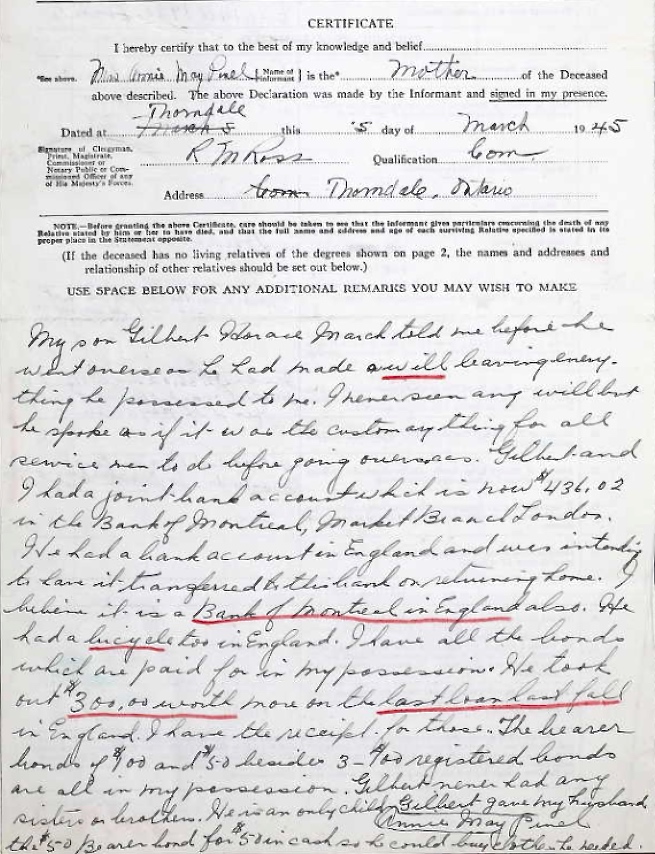 CERTIFICATE
I hereby certify that to the best of my knowledge and belief
*See above. Mrs Annie May Pinel {Name of Informant} is the* Mother of the Deceased
above described. The above Declaration was made by the Informant and signed in my presence.
Thorndale
Dated at March 5 this 5 day of March 1945
Signature of Clergyman, Priest, Magistrate, Commissioner or Notary Public or Commissioned Officer of any of His Majesty's Forces. R M Ross Qualification Com
Address Com Thorndale, Ontario
NOTE.—Before granting the above Certificate, care should be taken to see that the informant gives particulars concerning the death of any
Relative stated by him or her to have died, and that the full name and address and age of each surviving Relative specified is stated in its
proper place in the Statement opposite.
(If the deceased has no living relatives of the degrees shown on page 2, the names and addresses and
relationship of other relatives should be set out below.)
USE SPACE BELOW FOR ANY ADDITIONAL REMARKS YOU MAY WISH TO MAKE
My son Gilbert Horace March told me before he
went overseas he had made a will leaving every-
thing he possessed to me. I never seen any will but
he spoke as if it was the customary thing for all
service men to do before going overseas. Gilbert and
I had a joint bank account which is now $436.02
in the Bank of Montreal, Market Branch London.
He had a bank account in England and was intending
to have it transferred to this bank on returning home. I
believe it is a Bank of Montreal in England also. He
had a bicycle too in England. I have all the bonds
which are paid for in my possession. He took
out $300.00 worth more on the last loan last fall
in England. I have the receipt for those. The bearer
bonds of $100 and $50 besides 3-$100 registered bonds
are all in my possession. Gilbert never had any
sisters or brothers. He is an only child. Gilbert gave my husband
Annie May Pinel
the $50 Bearer bond for $50 in cash so he could buy clothes he needed.